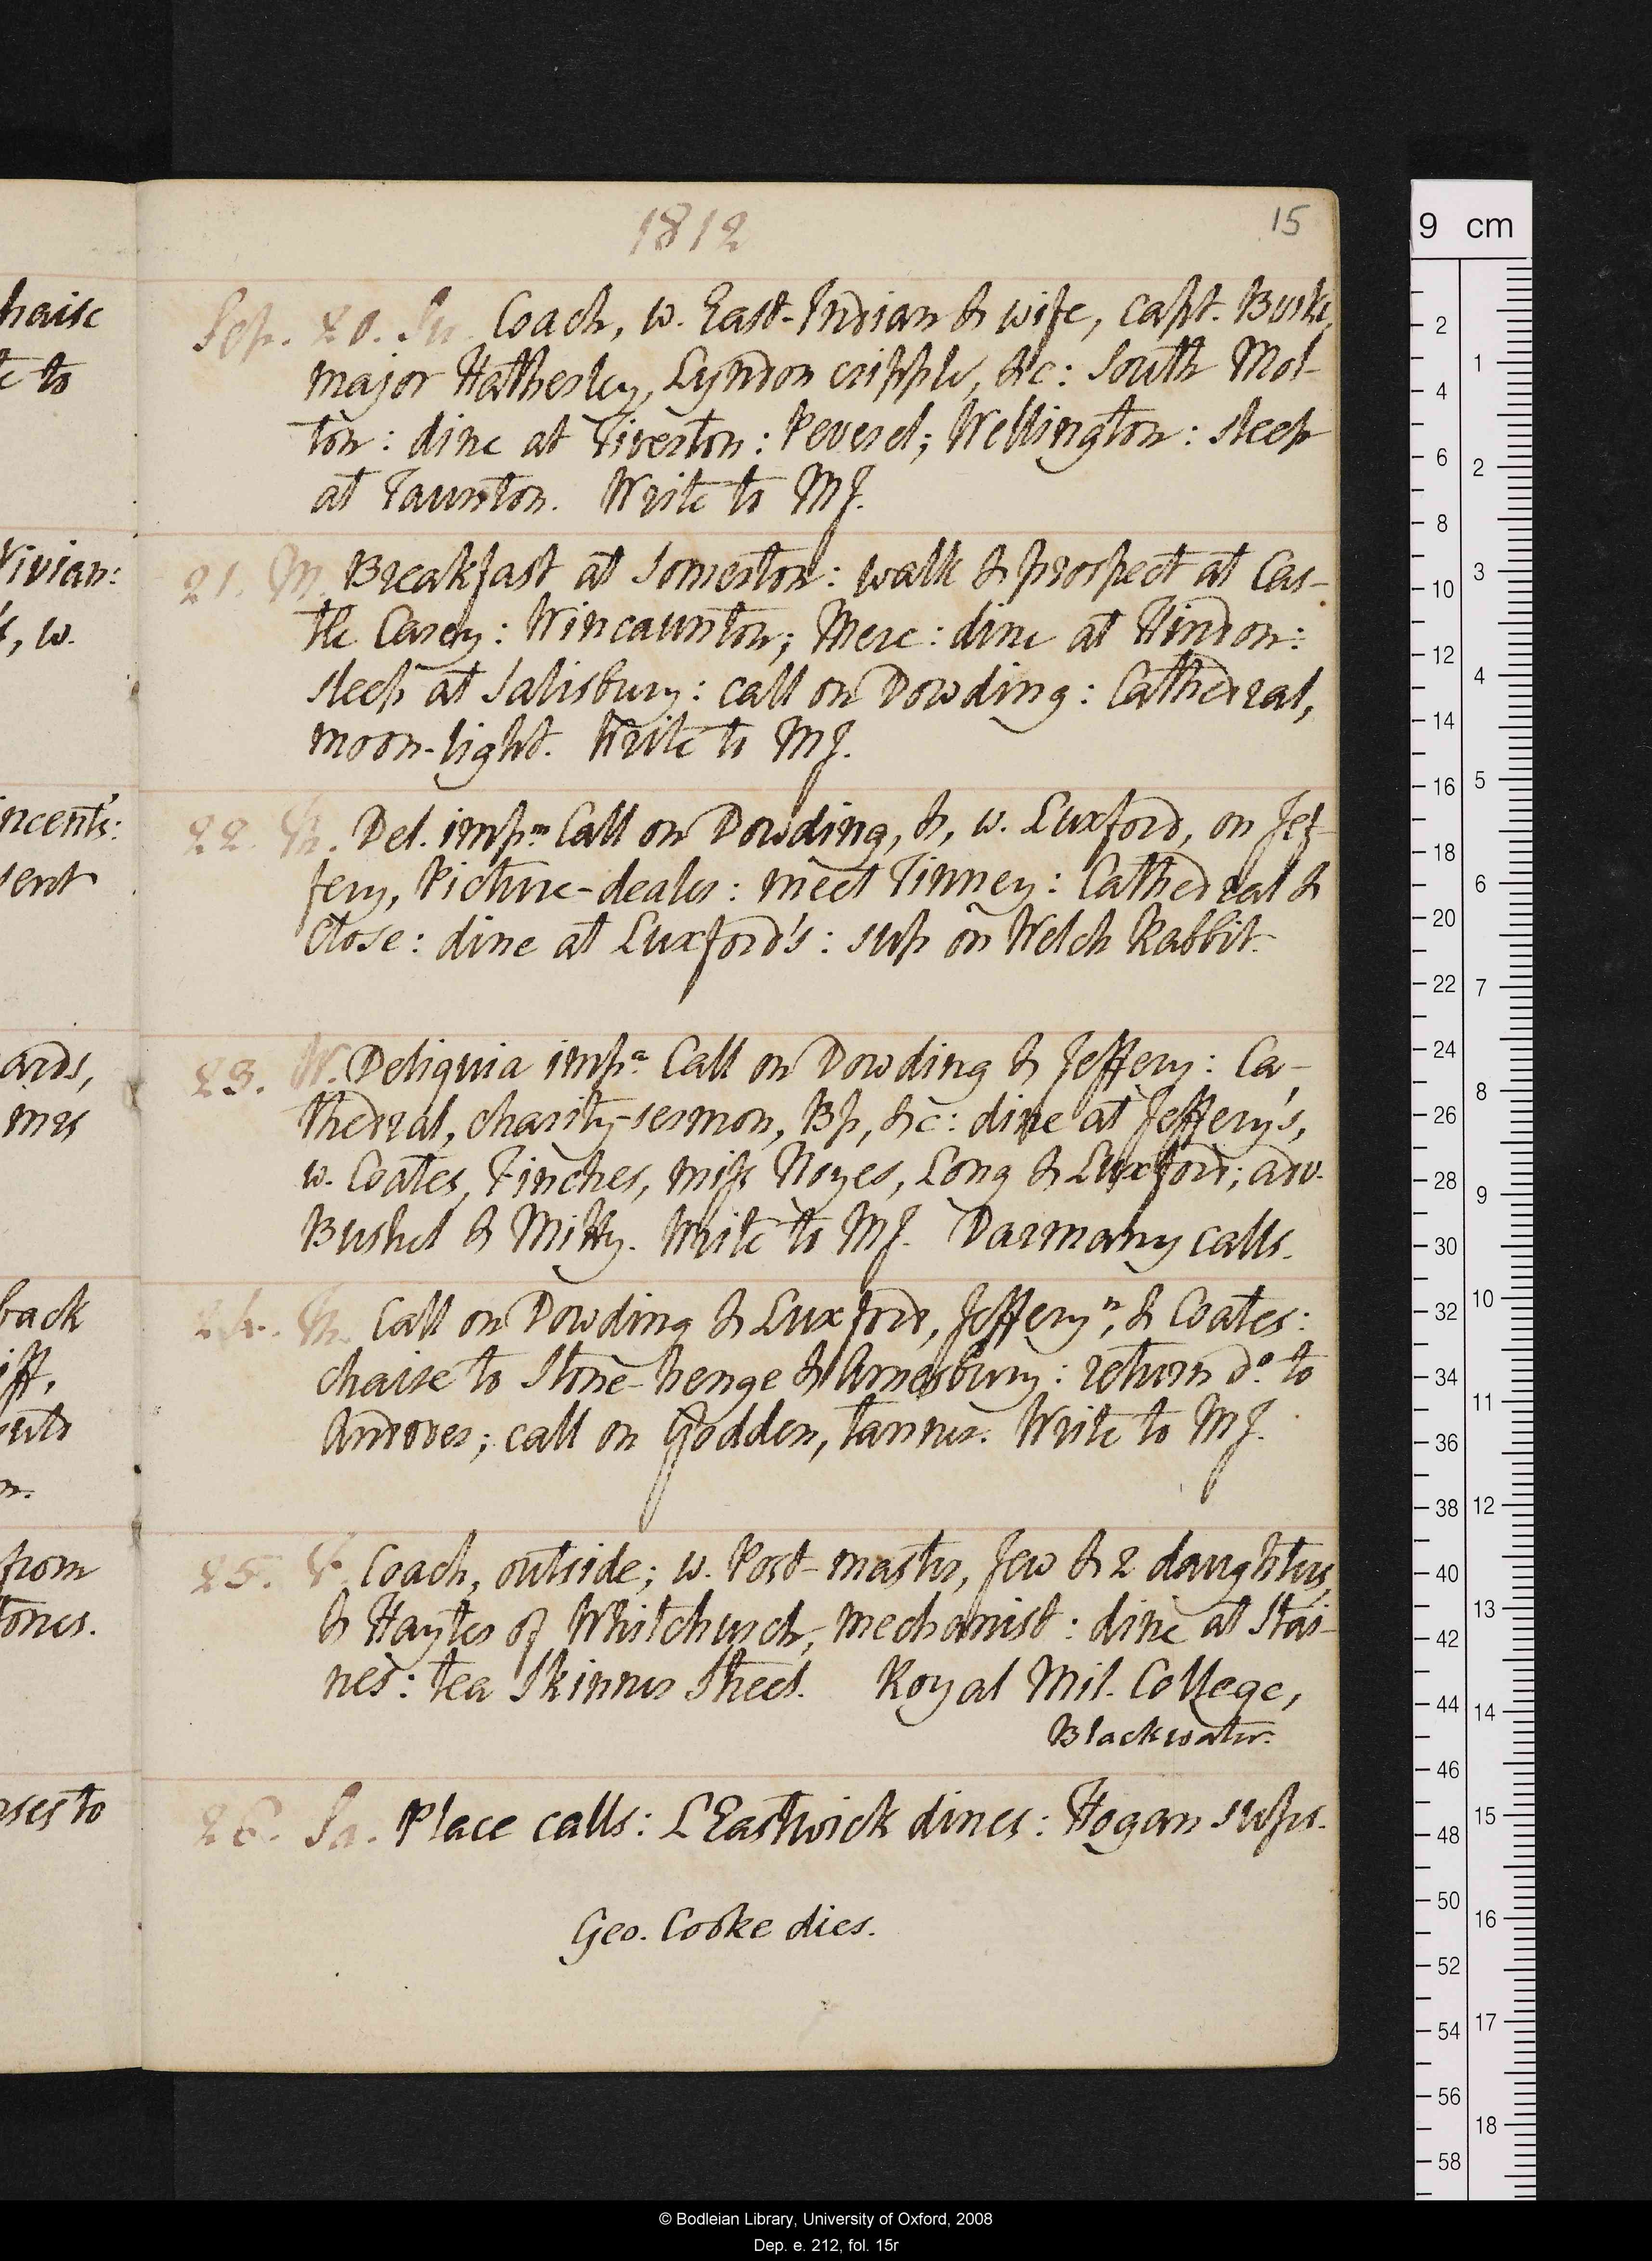 1812
15
Sep. 20. Su. Coach, w. East-Indian & wife, capt. Burke,
major Hathersley, Lyndon cripple, &c: South Mol-
ton: dine at Tiverton: Peverel; Wellington: sleep
at Taunton. Write to MJ.
21. M. Breakfast at Somerton: walk & prospect at Cas-
tle Carey: Wincaunton; Mere: dine at Hindon:
sleep at Salisbury: call on Dowding: Cathedral,
moon-light. Write to MJ.
22. Tu. Del. impm Call on Dowding, &, w. Luxford, on Jef-
fery, Picture-dealer: meet Tinney: Cathedral &
Close: dine at Luxford's: sup on Welch Rabbit.
23. W. Deliquia impa Call on Dowding & Jeffery: Ca-
thedral, charity-sermon, Bp, &c: dine at Jeffery's,
w. Coates, Finches, miss Noyes, Long & Luxford; adv.
Bushel & Mitty. Write to MJ. Darmany calls.
24. Th. Call on Dowding & Luxford, Jeffery n, & Coates:
chaise to Stone-henge & Amesbury: return do. to
Andover; call on Godden, tanner. Write to MJ.
25. F. Coach, outside; w. Post-master, Jew & 2 daughters,
& Hayter of Whitchurch, mechanist: dine at Stai-
nes: tea Skinner Street. Royal Mil. College,
Blackwater.
26. Sa. Place calls: L Eastwick dines: Hogan sups.
Geo. Cooke dies.
haise
te to
Vivian:
, w.
incent's:
sent
ards,
mrs
back
iff,
from
tones.
rses to
9 cm
2
4
6
8
10
12
14
16
18
20
22
24
26
28
30
32
34
36
38
40
42
44
46
48
50
52
54
56
58
1
2
3
4
5
6
7
8
9
10
11
12
13
14
15
16
17
18
© Bodleian Library, University of Oxford, 2008
Dep. e. 212, fol. 15r